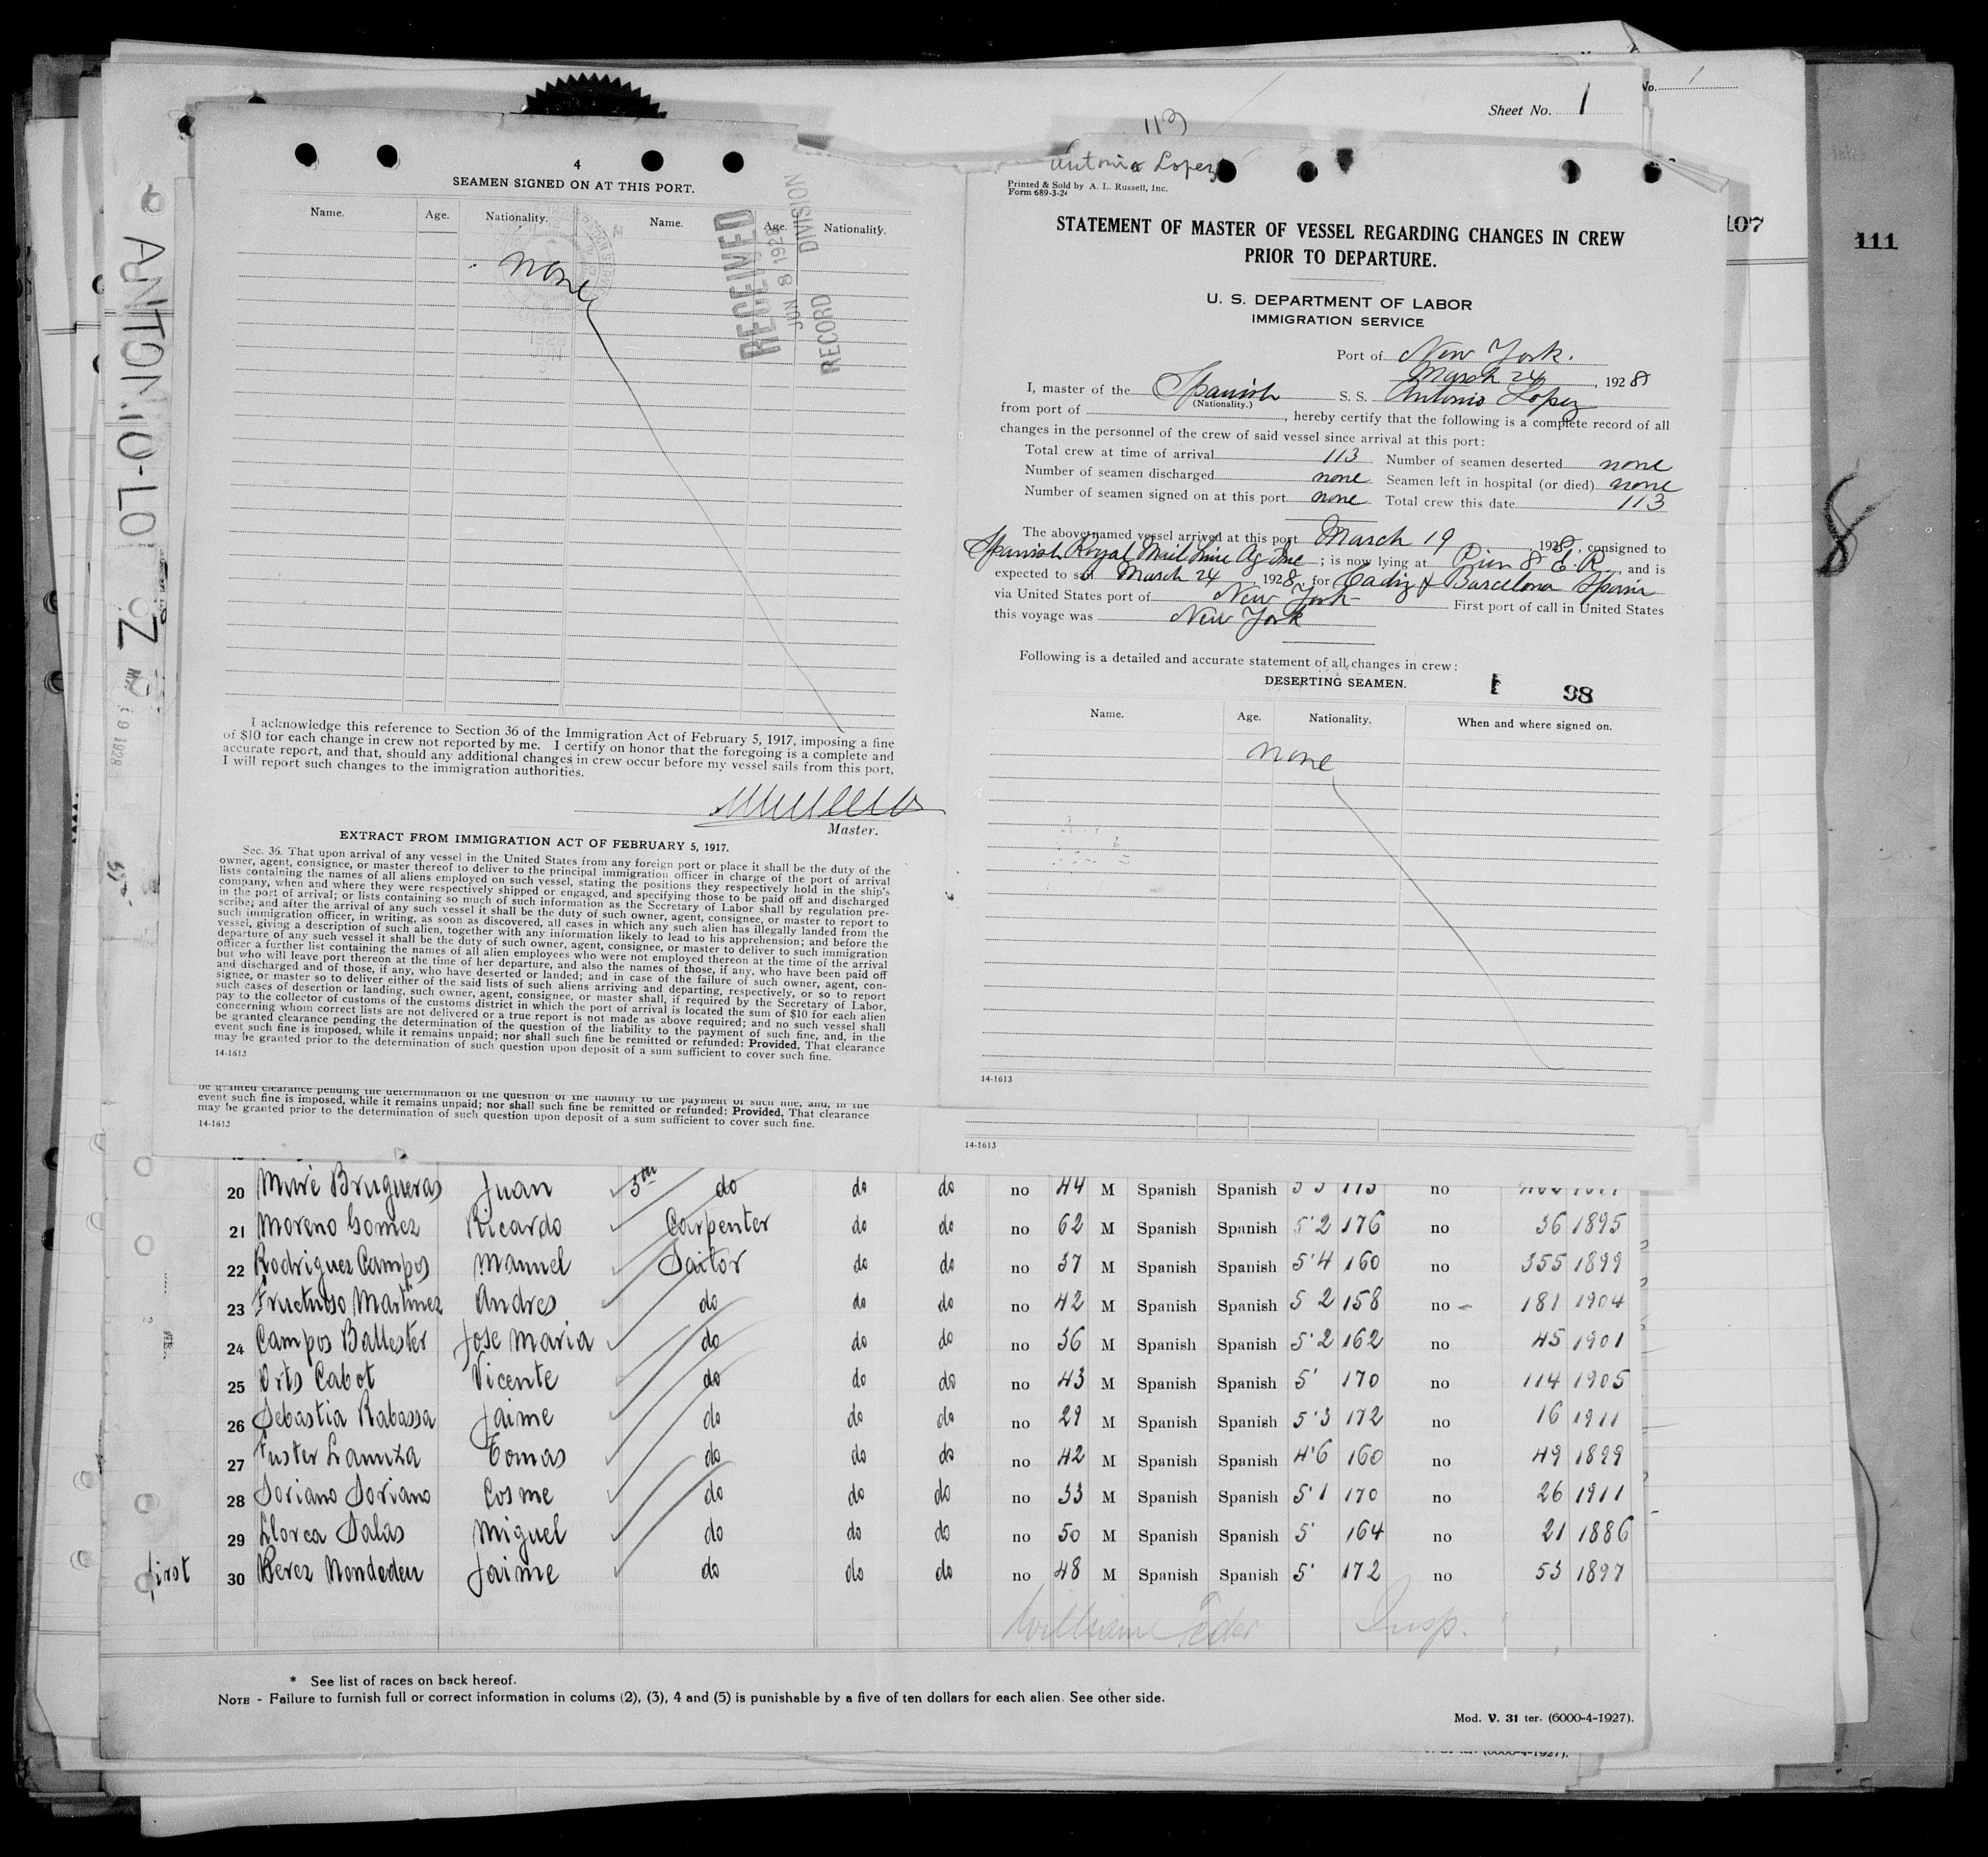 Sheet No. 1
No. 1
113
Antonio Lopez
107
111
8
ANTONIO-LOPEZ
4
SEAMEN SIGNED ON AT THIS PORT.
Name. Age. Nationality. Name. Age. Nationality.
none
RECEIVED
JUN 8 1928
RECORD DIVISION
I acknowledge this reference to Section 36 of the Immigration Act of February 5, 1917, imposing a fine
of $10 for each change in crew not reported by me. I certify on honor that the foregoing is a complete and
accurate report, and that, should any additional changes in crew occur before my vessel sails from this port,
I will report such changes to the immigration authorities.
Master.
EXTRACT FROM IMMIGRATION ACT OF FEBRUARY 5, 1917.
Sec. 36. That upon arrival of any vessel in the United States from any foreign port or place it shall be the duty of the
owner, agent, consignee, or master thereof to deliver to the principal immigration officer in charge of the port of arrival
lists containing the names of all aliens employed on such vessel, stating the positions they respectively hold in the ship's
company, when and where they were respectively shipped or engaged, and specifying those to be paid off and discharged
in the port of arrival; or lists containing so much of such information as the Secretary of Labor shall by regulation pre-
scribe; and after the arrival of any such vessel it shall be the duty of such owner, agent, consignee, or master to report to
such immigration officer, in writing, as soon as discovered, all cases in which any such alien has illegally landed from the
vessel, giving a description of such alien, together with any information likely to lead to his apprehension; and before the
departure of any such vessel it shall be the duty of such owner, agent, consignee, or master to deliver to such immigration
officer a further list containing the names of all alien employees who were not employed thereon at the time of the arrival
but who will leave port thereon at the time of her departure, and also the names of those, if any, who have been paid off
and discharged and of those, if any, who have deserted or landed; and in case of the failure of such owner, agent, con-
signee, or master so to deliver either of the said lists of such aliens arriving and departing, respectively, or so to report
such cases of desertion or landing, such owner, agent, consignee, or master shall, if required by the Secretary of Labor,
pay to the collector of customs of the customs district in which the port of arrival is located the sum of $10 for each alien
concerning whom correct lists are not delivered or a true report is not made as above required; and no such vessel shall
be granted clearance pending the determination of the question of the liability to the payment of such fine, and, in the
event such fine is imposed, while it remains unpaid; nor shall such fine be remitted or refunded: Provided, That clearance
may be granted prior to the determination of such question upon deposit of a sum sufficient to cover such fine.
14-1613
be granted clearance pending the determination of the question of the liability to the payment of such fine, and, in the
event such fine is imposed, while it remains unpaid; nor shall such fine be remitted or refunded: Provided, That clearance
may be granted prior to the determination of such question upon deposit of a sum sufficient to cover such fine.
14-1613
Printed & Sold by A. L. Russell, Inc.
Form 689-3-24
STATEMENT OF MASTER OF VESSEL REGARDING CHANGES IN CREW
PRIOR TO DEPARTURE.
U. S. DEPARTMENT OF LABOR
IMMIGRATION SERVICE
Port of New York.
March 24, 1928
I, master of the Spanish S. S. Antonio Lopez
(Nationality.)
from port of , hereby certify that the following is a complete record of all
changes in the personnel of the crew of said vessel since arrival at this port:
Total crew at time of arrival 113 Number of seamen deserted none
Number of seamen discharged none Seamen left in hospital (or died) none
Number of seamen signed on at this port none Total crew this date 113
The above-named vessel arrived at this port March 19 1928, consigned to
Spanish Royal Mail Line Ag Inc ; is now lying at Pier 8 E. R., and is
expected to sail March 24, 1928, for Cadiz & Barcelona Spain
via United States port of New York First port of call in United States
this voyage was New York
Following is a detailed and accurate statement of all changes in crew:
DESERTING SEAMEN.
98
Name. Age. Nationality. When and where signed on.
none
14-1613
14-1613
20 Mure Brugueras Juan 3rd do do do no 44 M Spanish Spanish no
21 Moreno Gomez Ricardo Carpenter do do no 62 M Spanish Spanish 5'2 176 no 36 1895
22 Rodriguez Campos Manuel Sailor do do no 37 M Spanish Spanish 5'4 160 no 355 1899
23 Fructuoso Martinez Andres do do do no 42 M Spanish Spanish 5 2 158 no 181 1904
24 Campos Ballester Jose Maria do do do no 36 M Spanish Spanish 5'2 162 no 45 1901
25 Orts Cabot Vicente do do do no 43 M Spanish Spanish 5' 170 no 114 1905
26 Sebastia Rabassa Jaime do do do no 29 M Spanish Spanish 5'3 172 no 16 1911
27 Fuster Tomas do do do no 42 M Spanish Spanish 4'6 160 no 49 1899
28 Soriano Soriano Cosme do do do no 33 M Spanish Spanish 5'1 170 no 26 1911
29 Llorca Salas Miguel do do do no 50 M Spanish Spanish 5' 164 no 21 1886
first 30 Perez Nondedeu Jaime do do do no 48 M Spanish Spanish 5' 172 no 53 1897
William Insp.
* See list of races on back hereof.
NOTE - Failure to furnish full or correct information in colums (2), (3), 4 and (5) is punishable by a five of ten dollars for each alien. See other side.
Mod. V. 31 ter. (6000-4-1927).